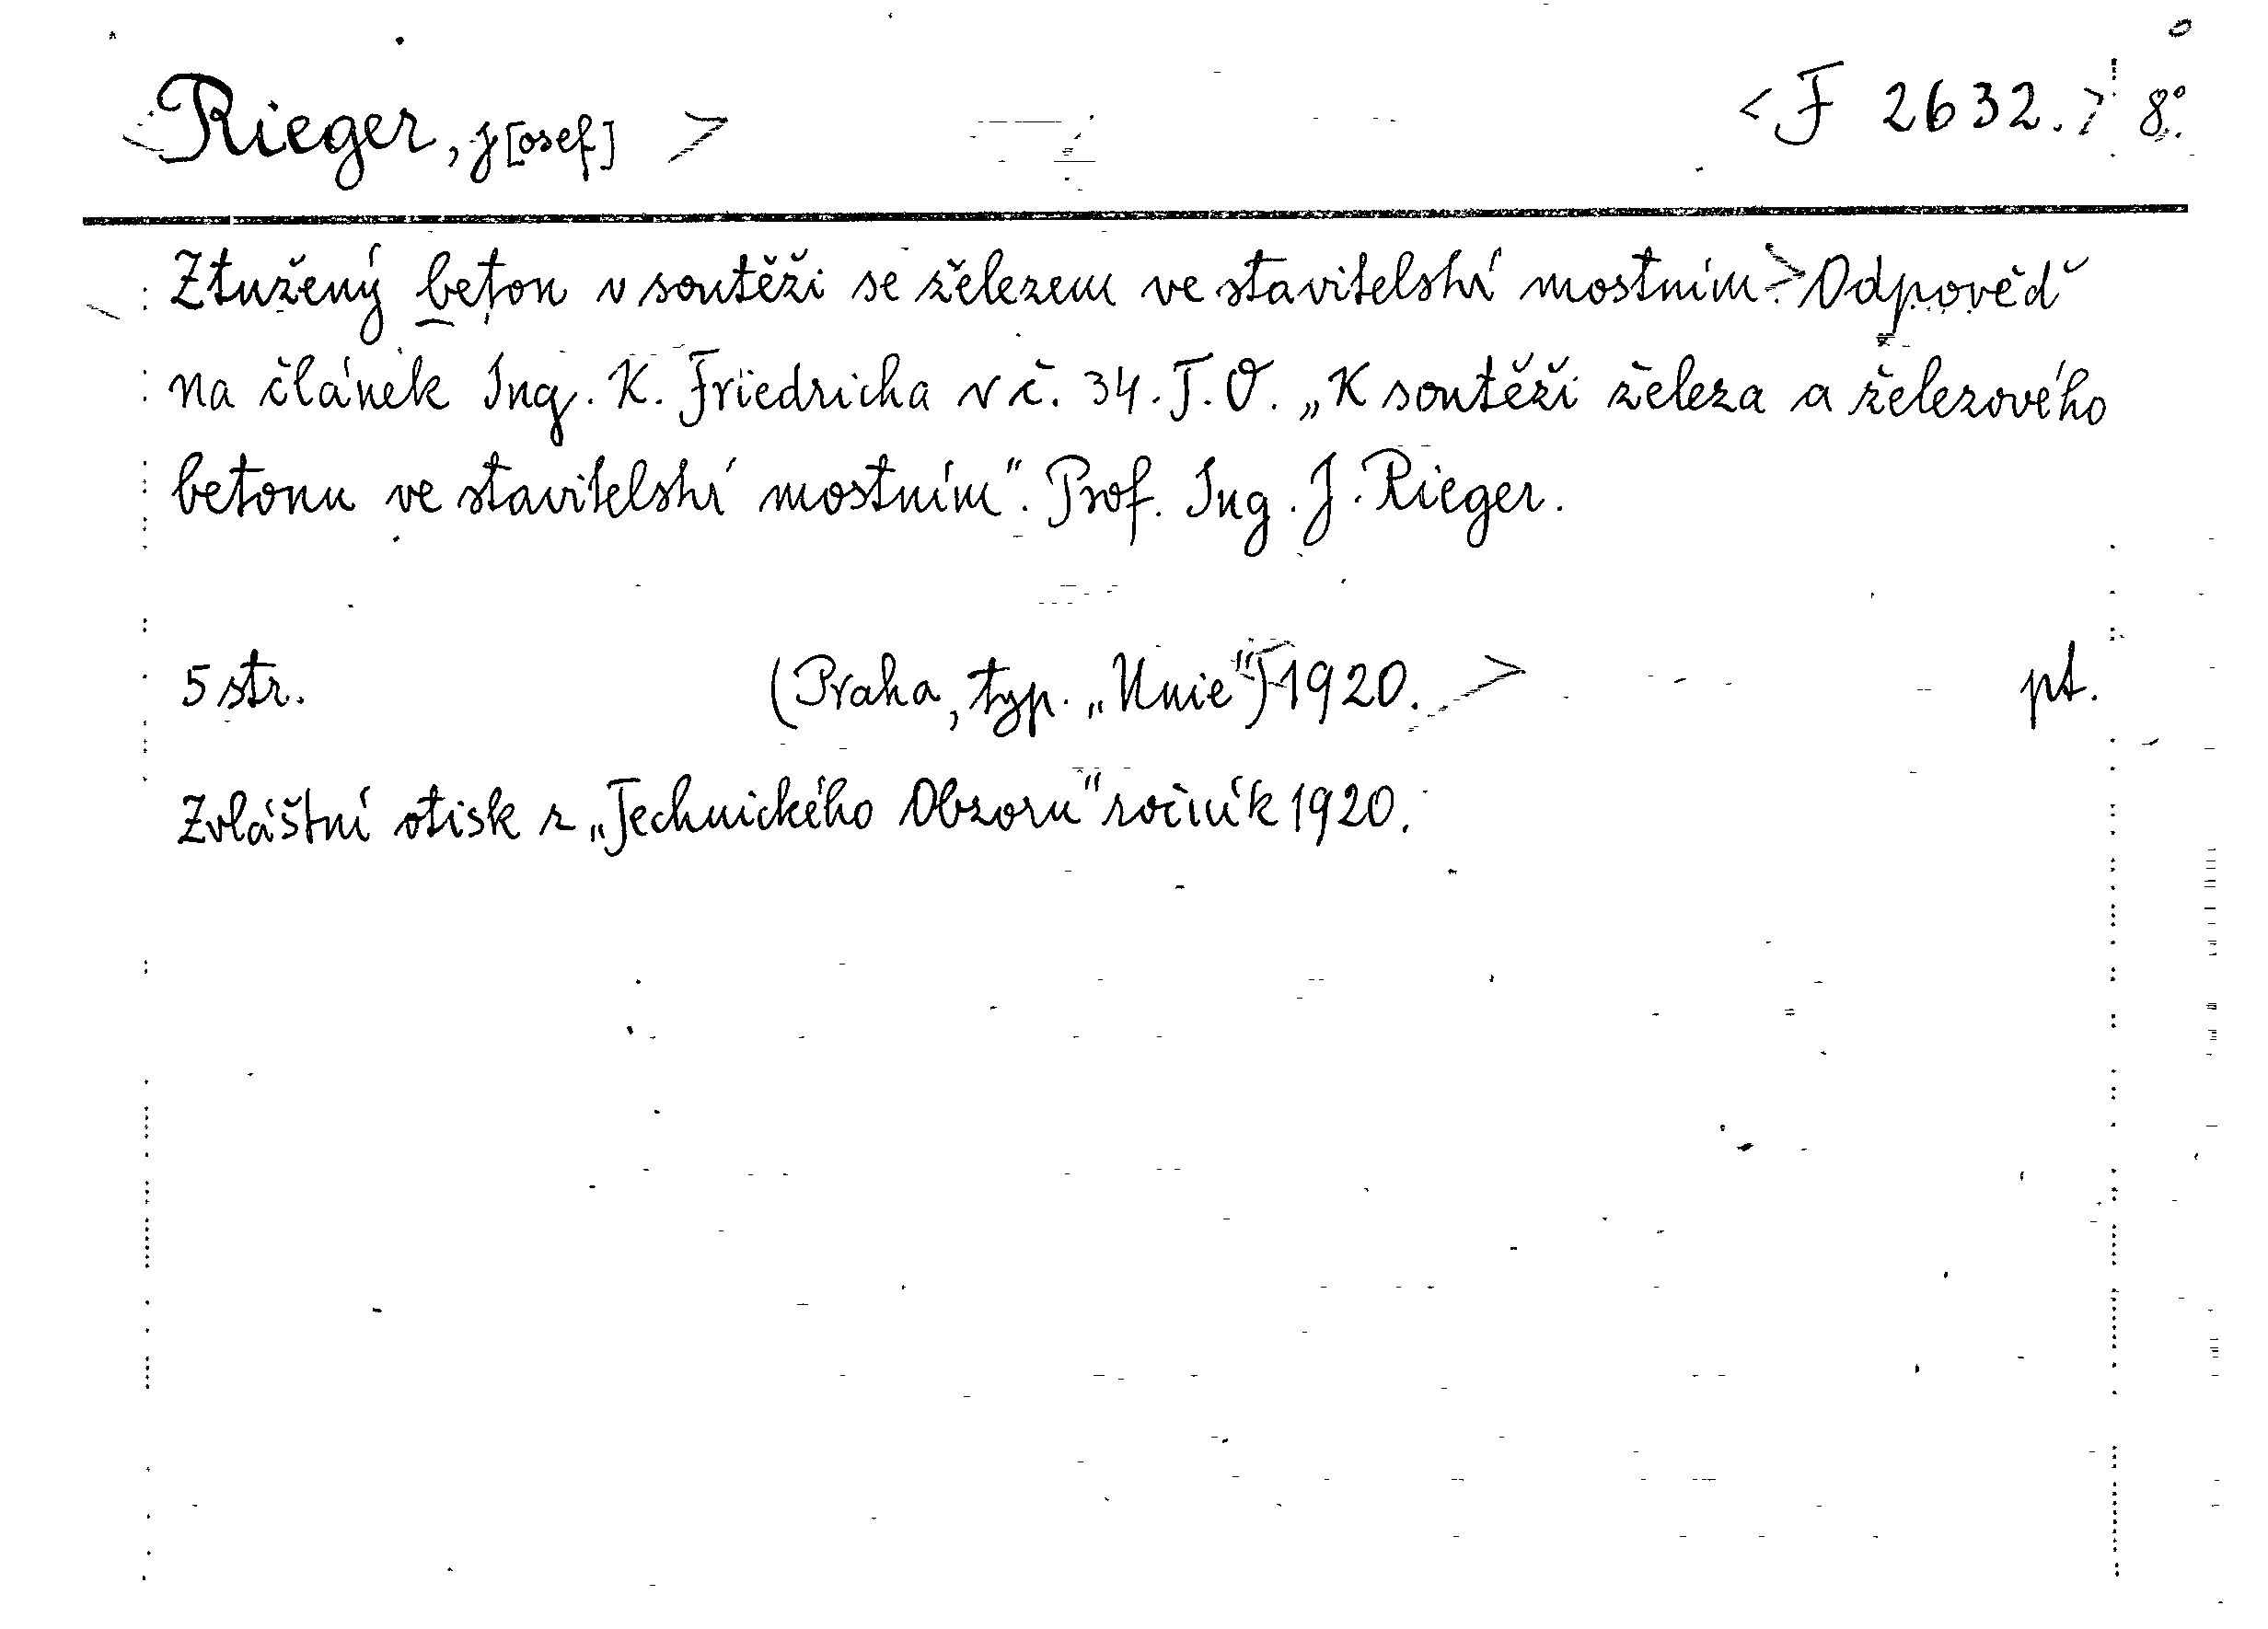 <Rieger, J[osef] > <F 2632.> 8°.
Ztužený beton v soutěži se železem ve stavitelství mostním.> Odpověď
na článek Ing. K. Friedricha v č. 34. T. O. „K soutěži železa a železového
betonu ve stavitelství mostním". Prof. Ing. J. Rieger.
5 str. (Praha, typ. „Unie") 1920. > pt.
Zvláštní otisk z „Technického Obzoru" ročník 1920.